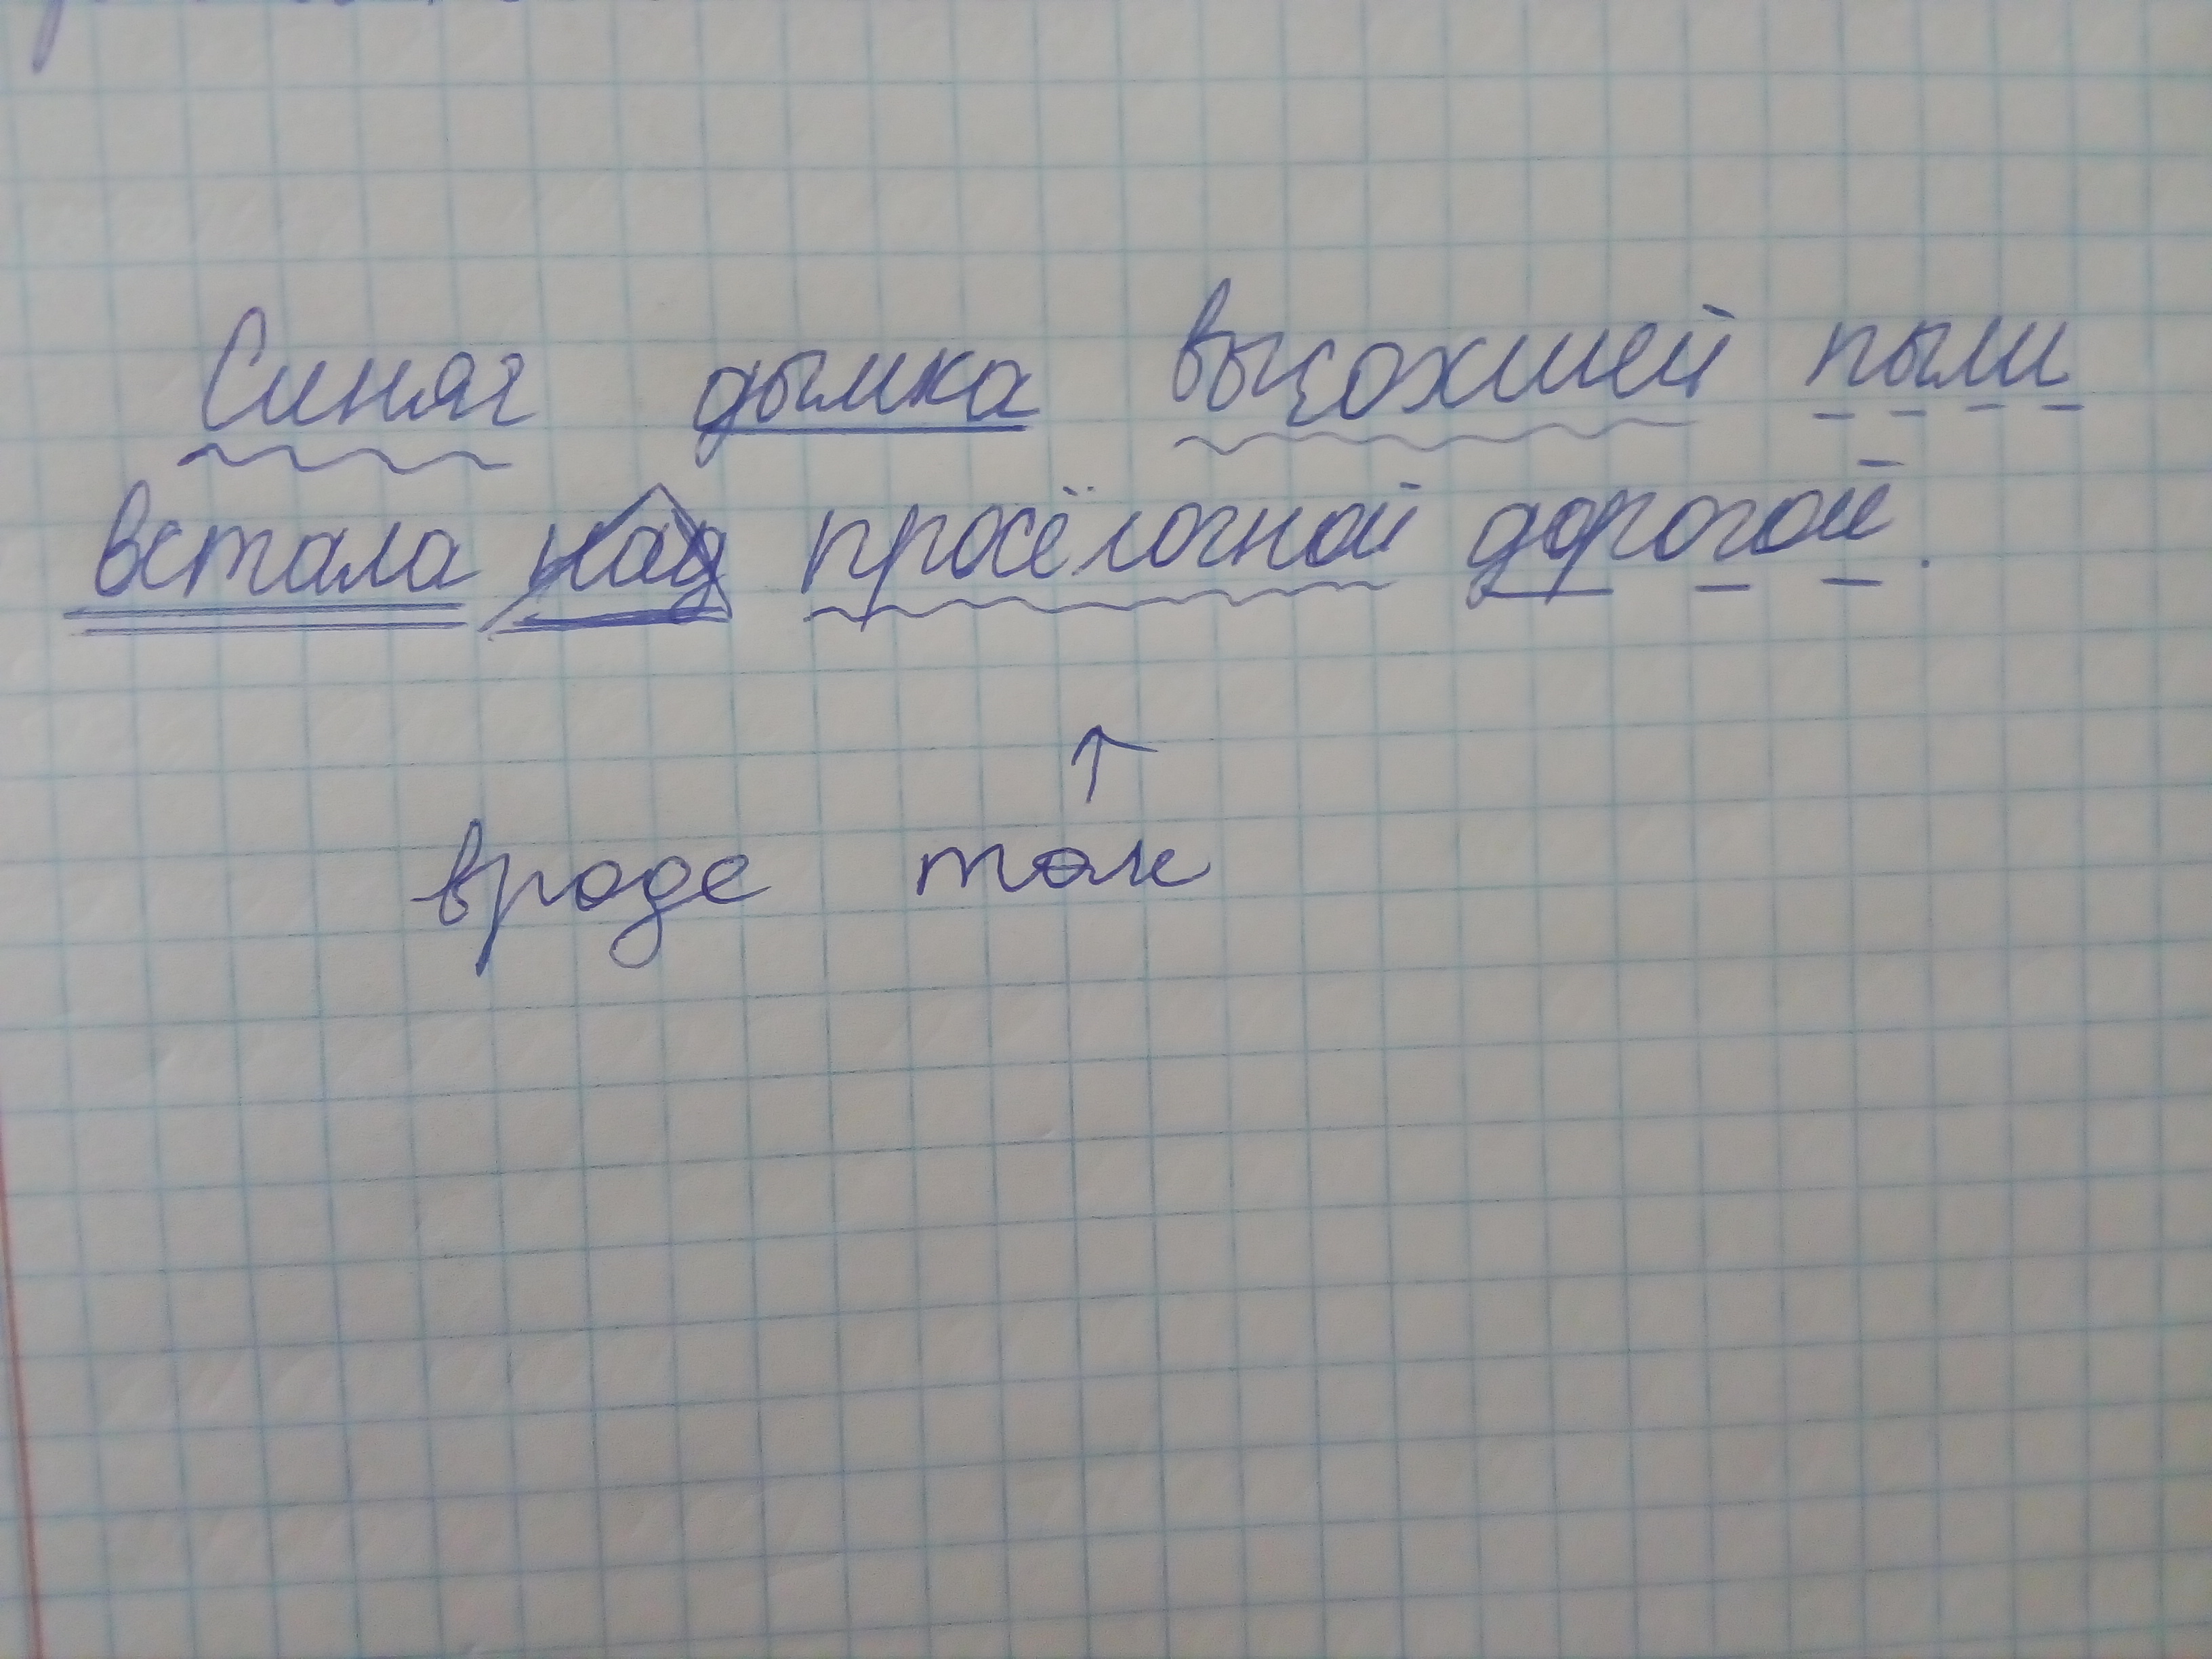 Синяя дымка высохшей пыли
встала над просёлочной дорогой.
вроде так